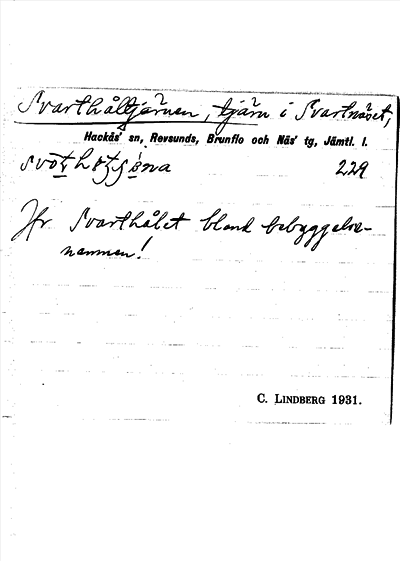 Svarthåltjärnen, tjärn i Svartnäset,
Hackås sn, Revsunds, Brunflo och Näs tg, Jämtl. l.
229
Jfr Svarthålet bland bebyggelse-
namnen!
C. LINDBERG 1931.